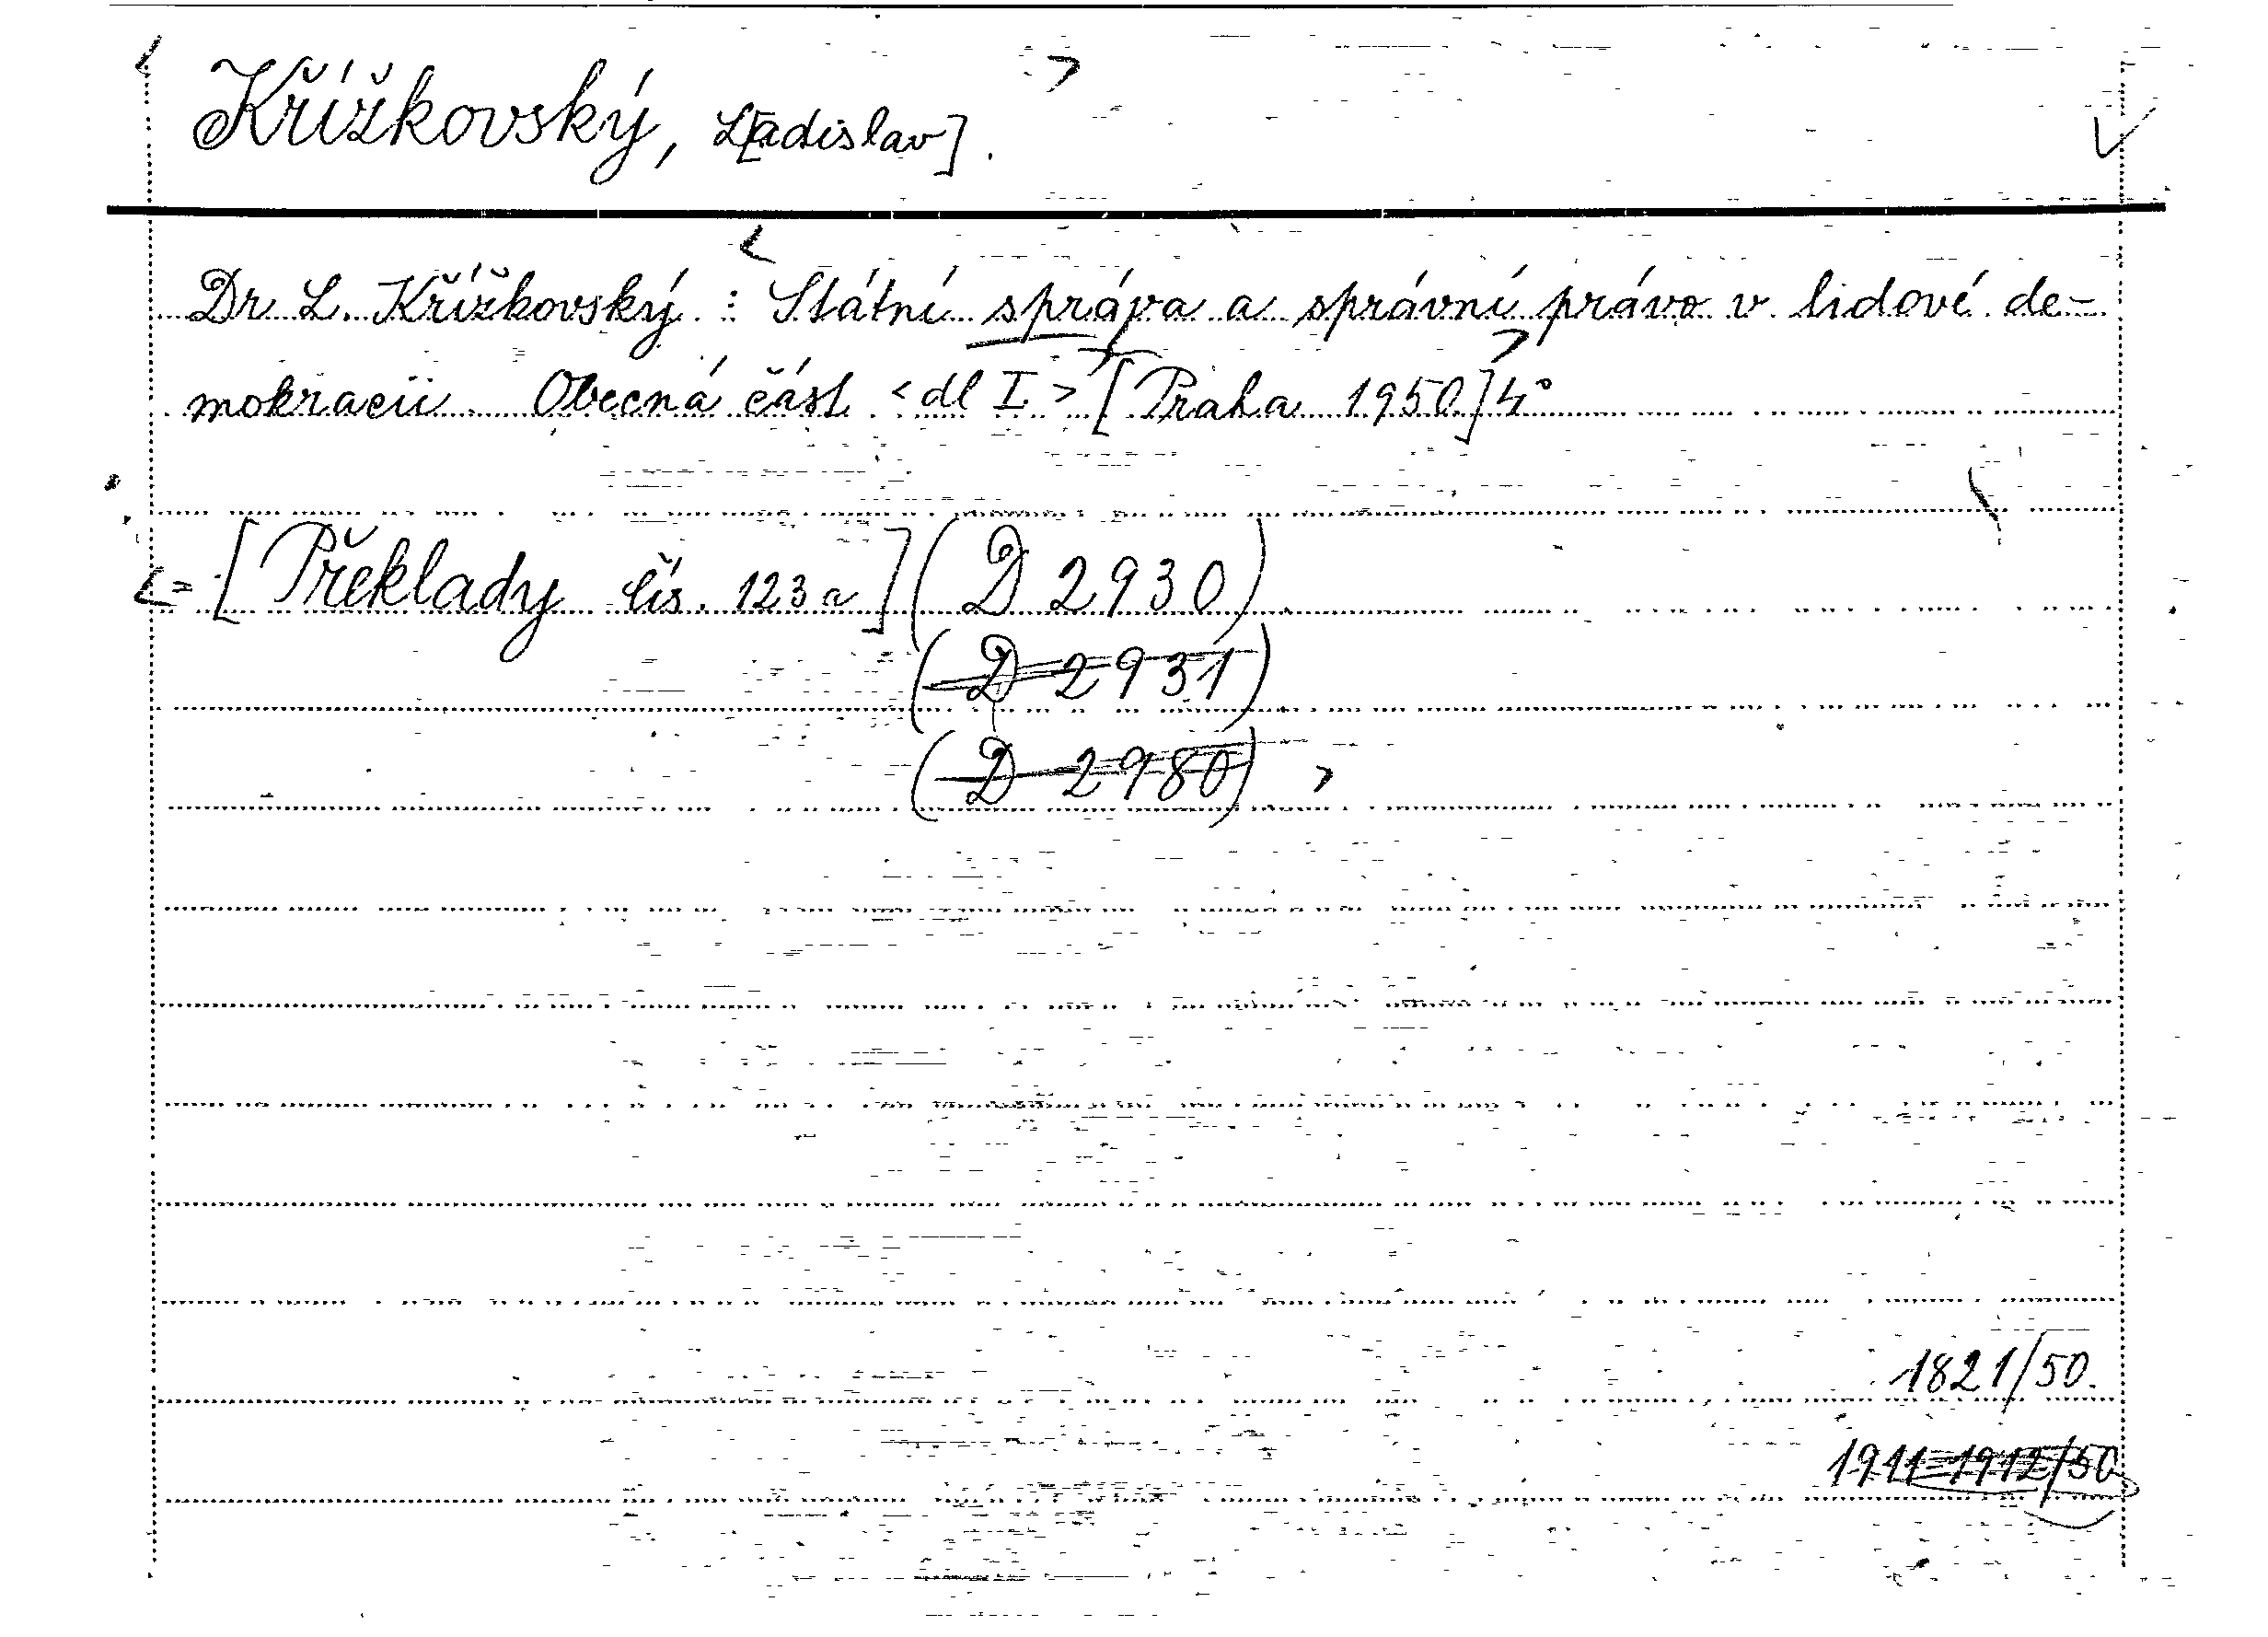 Křížkovský, L[adislav].
Dr L. Křížkovský : Státní správa a správní právo v lidové de-
mokracii Obecná část <dl I.> [Praha 1950] 4°
[Překlady čís. 123a] (D 2930)
(D 2931)
(D 2980)
1821/50.
1911-1912/50